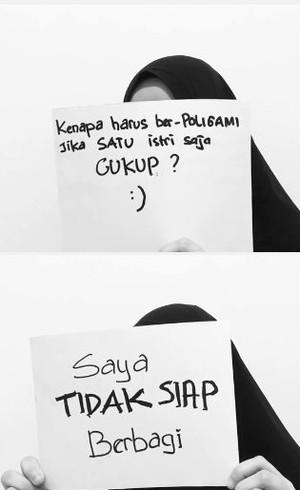 Kenapa harus ber-POLIGAMI
Jika SATU istri saja
CUKUP ?
:)
Saya
TIDAK SIAP
Berbagi